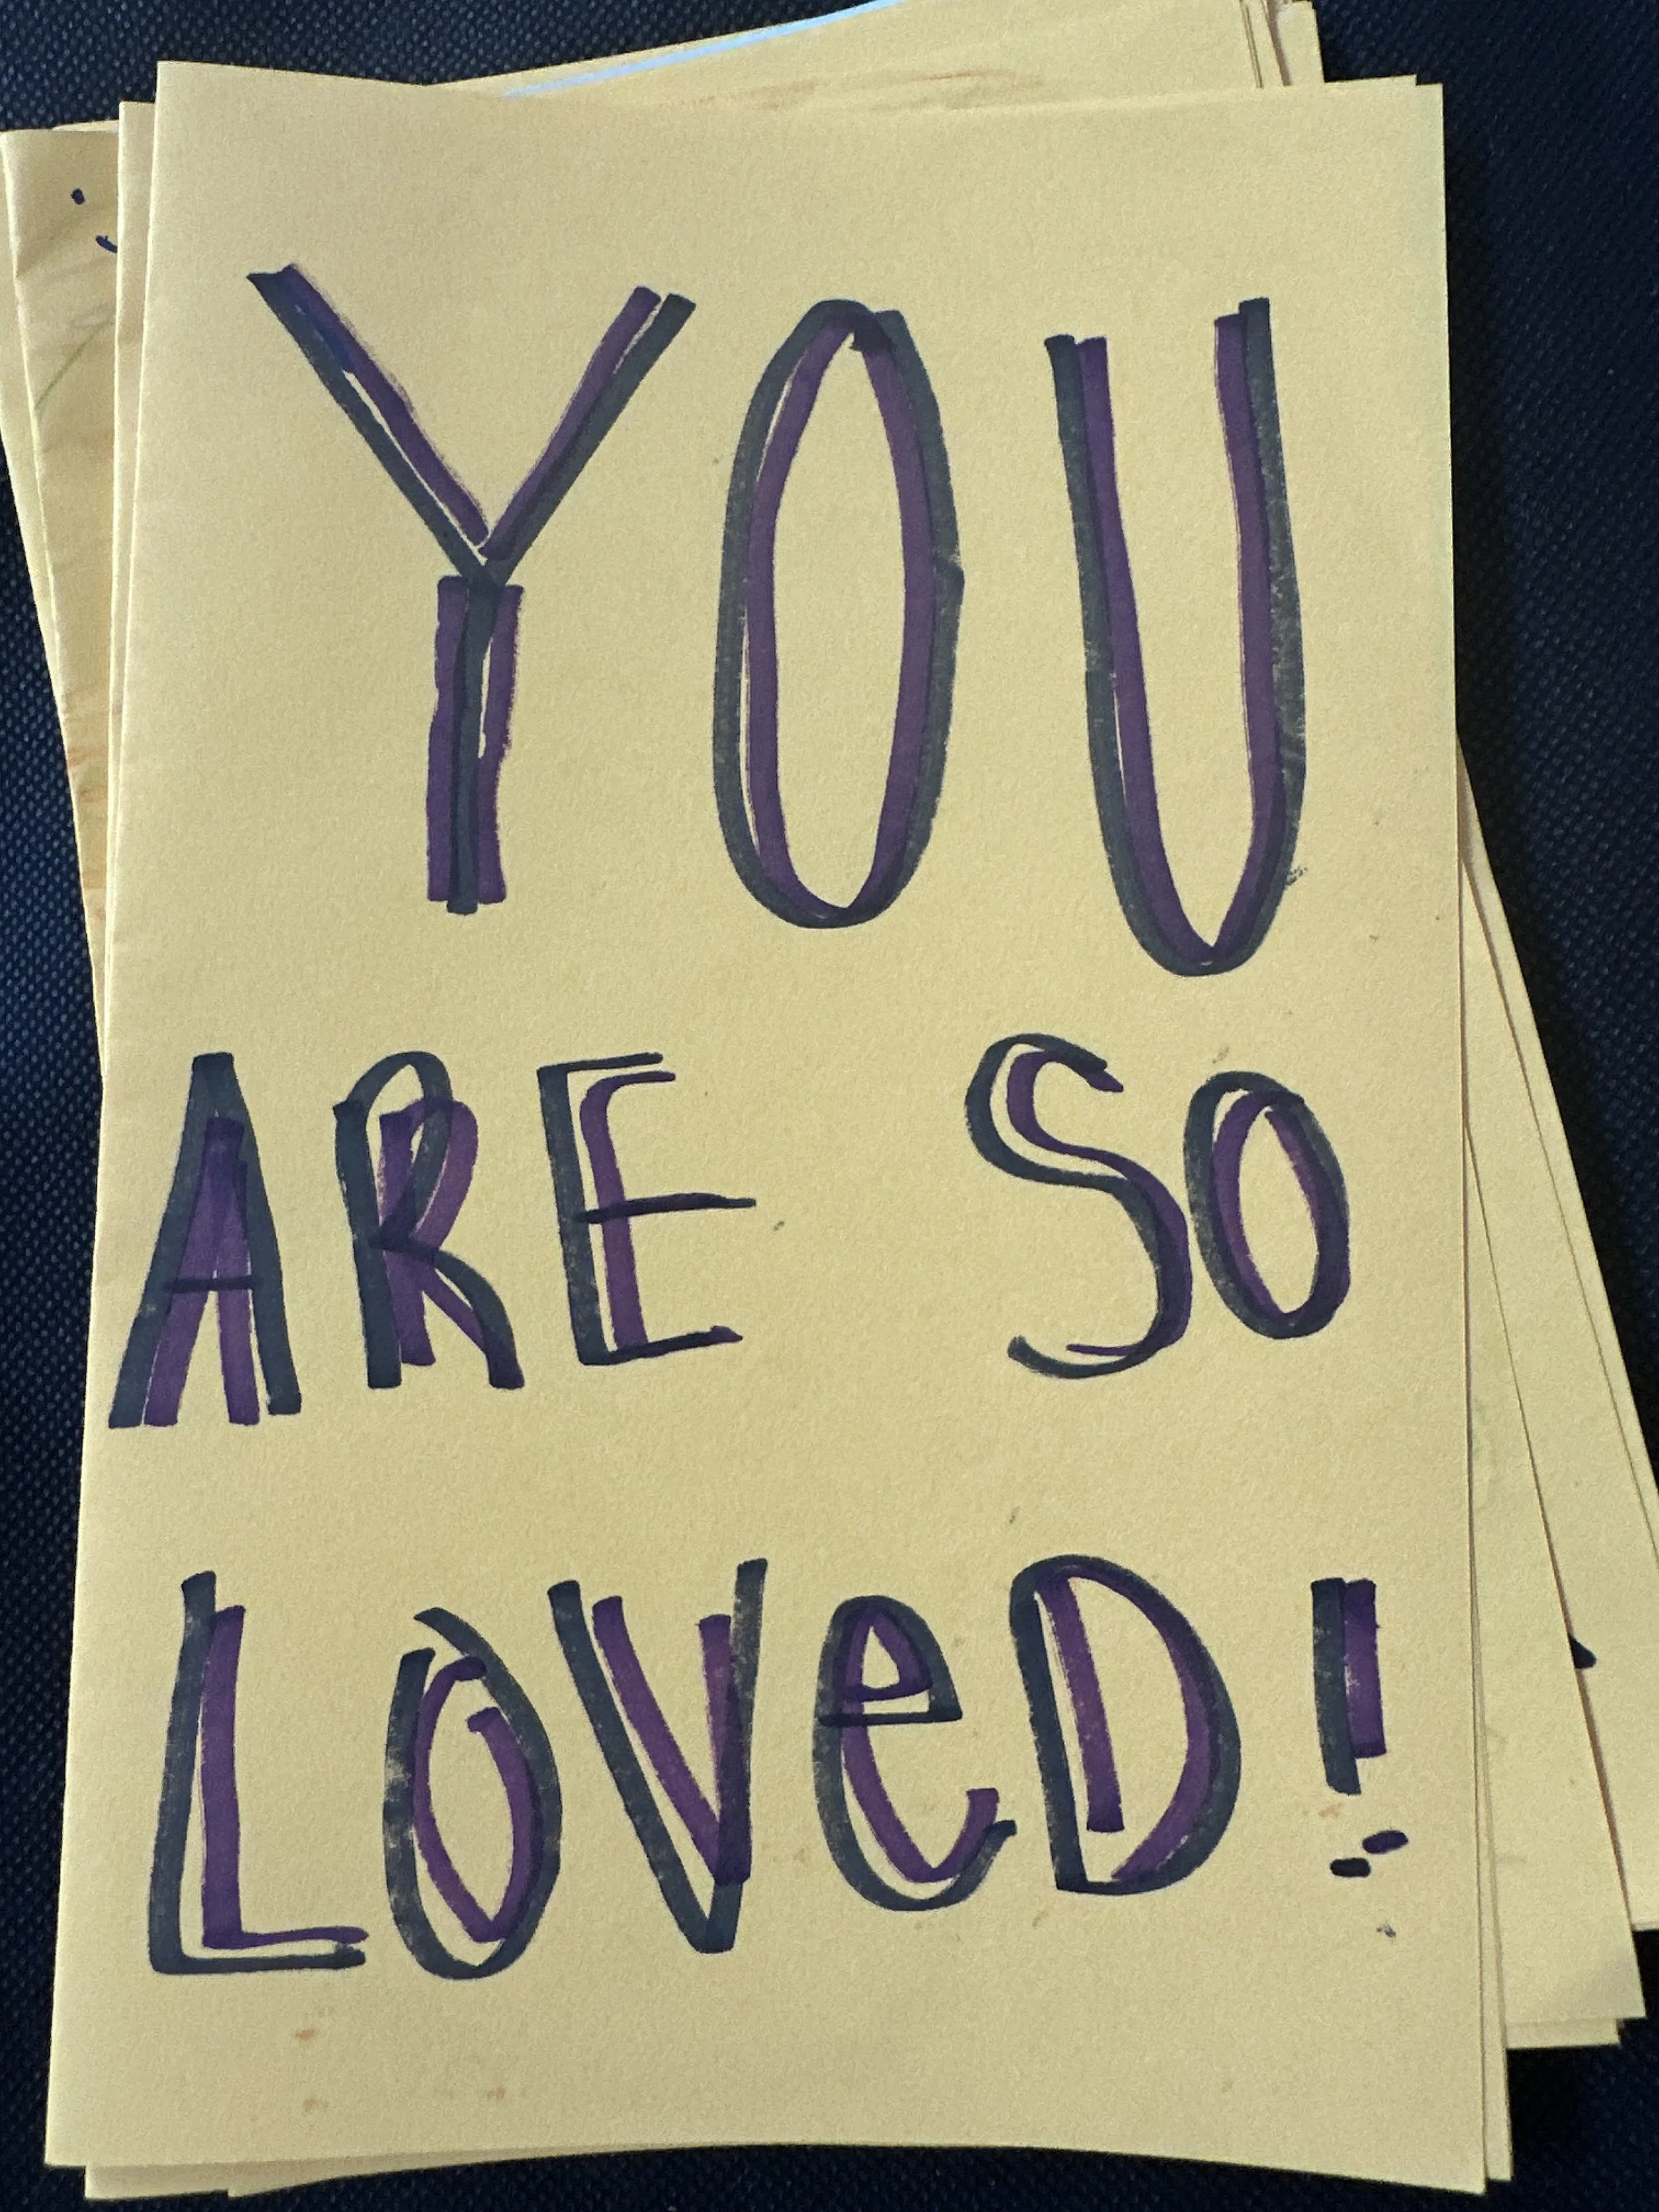 YOU
ARE SO
LOVeD!